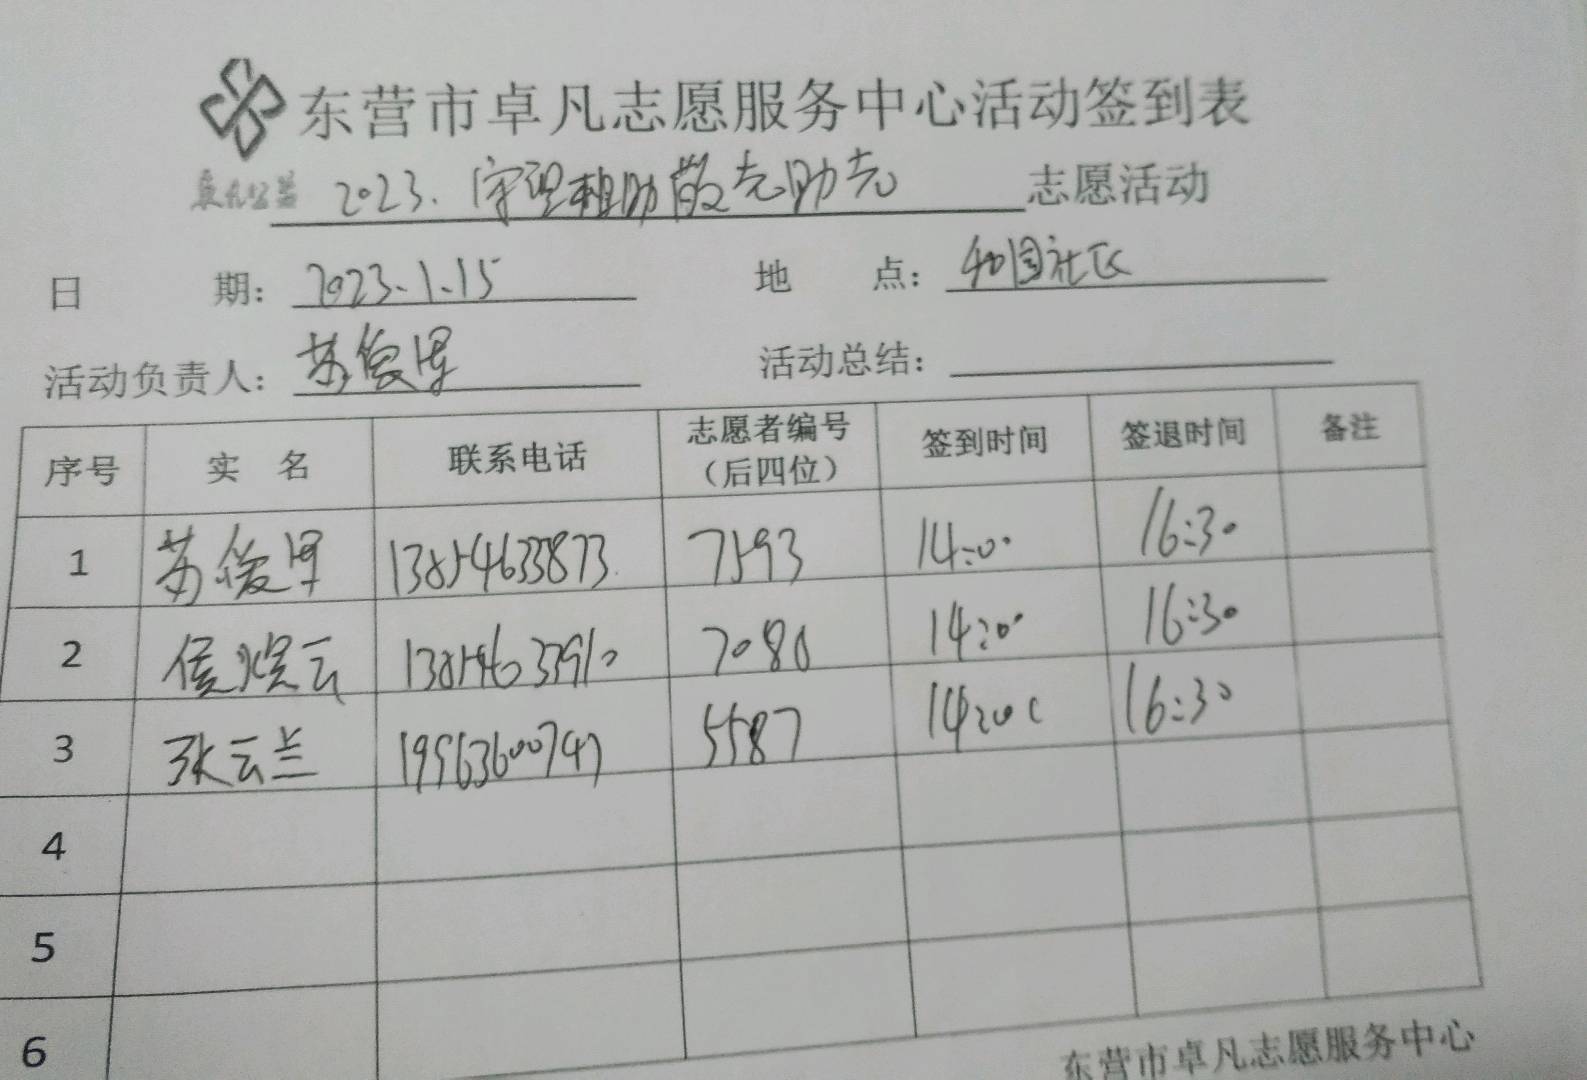 东营市卓凡志愿服务中心活动签到表
卓凡公益 2023.守望相助敬老助老 志愿活动
日期：2023.1.15 地点：和园社区
活动负责人：苏俊 活动总结：
序号 实名 联系电话 志愿者编号（后四位） 签到时间 签退时间 备注
1 苏俊 13854633873 7593 14:00 16:30
2 侯煜云 13854633910 7080 14:00 16:30
3 张云兰 19563600747 5587 14:00 16:30
4
5
6
东营市卓凡志愿服务中心